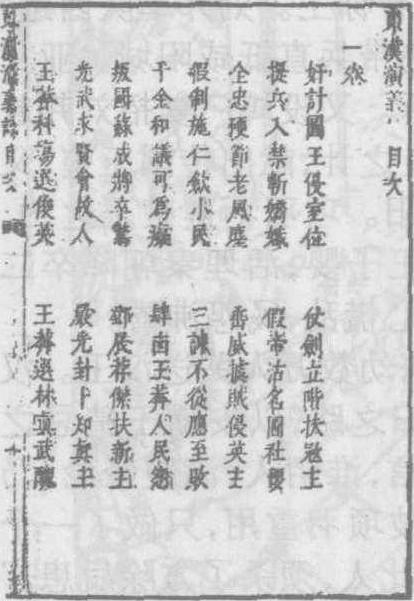 東漢演義 目次
一卷
奸計圖王侵室位 仗劍立階扶冠主
提兵入禁斬嬌娥 假帝沽名圖社稷
全忠硬節老風塵 奮威據賊侵英主
假制施仁斂小民 三諫不從應至敗
千金和議可為 肆凶王莽人民怨
叛國蘇成將卒驚 鄧辰荐傑扶新主
光武求賢會故人 嚴光卦卜知真主
王莽科場選俊英 王莽選林寘武
東漢演義 目次